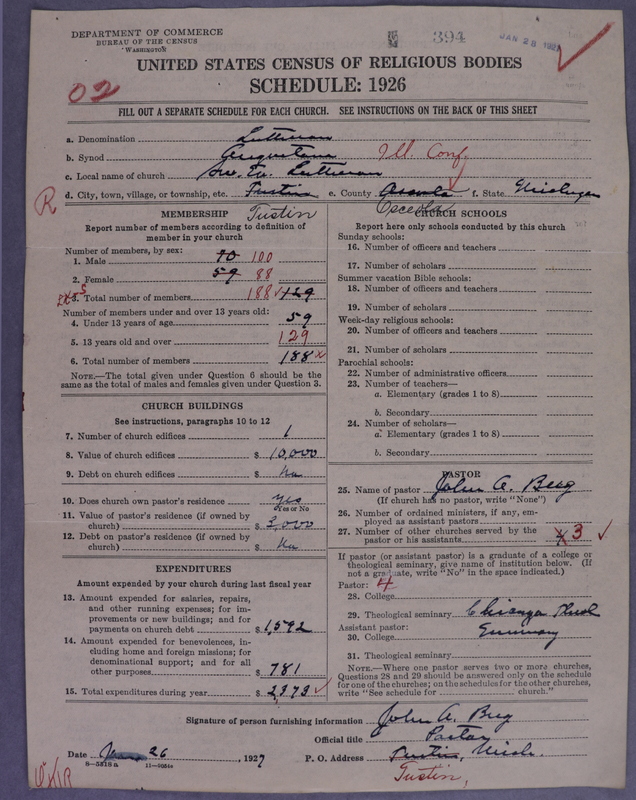 DEPARTMENT OF COMMERCE
BUREAU OF THE CENSUS
WASHINGTON
394
JAN 28 192
UNITED STATES CENSUS OF RELIGIOUS BODIES
SCHEDULE: 1926
02
FILL OUT A SEPARATE SCHEDULE FOR EACH CHURCH. SEE INSTRUCTIONS ON THE BACK OF THIS SHEET
a. Denomination Lutheran
b. Synod Augustana Ill. Conf.
c. Local name of church Sw. Ev. Lutheran
d. City, town, village, or township, etc. Tustin e. County Osceola f. State Michigan
R
Tustin
Osceola
MEMBERSHIP
Report number of members according to definition of member in your church
Number of members, by sex:
1. Male 70 100
2. Female 59 88
3. Total number of members 188 129
Number of members under and over 13 years old:
4. Under 13 years of age 59
5. 13 years old and over 129
6. Total number of members 188 x
NOTE.—The total given under Question 6 should be
same as the total of males and females given under Question 3.
CHURCH BUILDINGS
See instructions, paragraphs 10 to 12
7. Number of church edifices 1
8. Value of church edifices $ 10,000
9. Debt on church edifices $ No
10. Does church own pastor's residence yes
Yes or No
11. Value of pastor's residence (if owned by
church) $ 3,000
12. Debt on pastor's residence (if owned by
church) $ No
EXPENDITURES
Amount expended by your church during last fiscal year
13. Amount expended for salaries, repairs,
and other running expenses; for im-
provements or new buildings; and for
payments on church debt $ 1,592
14. Amount expended for benevolences, in-
cluding home and foreign missions; for
denominational support; and for all
other purposes $ 781
15. Total expenditures during year $ 2,373
CHURCH SCHOOLS
Report here only schools conducted by this church
Sunday schools:
16. Number of officers and teachers
17. Number of scholars
Summer vacation Bible schools:
18. Number of officers and teachers
19. Number of scholars
Week-day religious schools:
20. Number of officers and teachers
21. Number of scholars
Parochial schools:
22. Number of administrative officers
23. Number of teachers—
a. Elementary (grades 1 to 8)
b. Secondary
24. Number of scholars—
a. Elementary (grades 1 to 8)
b. Secondary
PASTOR
25. Name of pastor John A. Berg
(If church has no pastor, write "None")
26. Number of ordained ministers, if any, em-
ployed as assistant pastors
27. Number of other churches served by the
pastor or his assistants 3
If pastor (or assistant pastor) is a graduate of a college or
theological seminary, give name of institution below. (If
not a graduate, write "No" in the space indicated.)
Pastor: 4
28. College
29. Theological seminary Chicago
Assistant pastor:
30. College Seminary
31. Theological seminary
NOTE.—Where one pastor serves two or more churches,
Questions 28 and 29 should be answered only on the schedule
for one of the churches; on the schedules for the other churches,
write "See schedule for church."
Signature of person furnishing information John A. Berg
Official title Pastor
Date 26, 1927 P. O. Address Tustin, Mich.
8-5518a
Tustin,